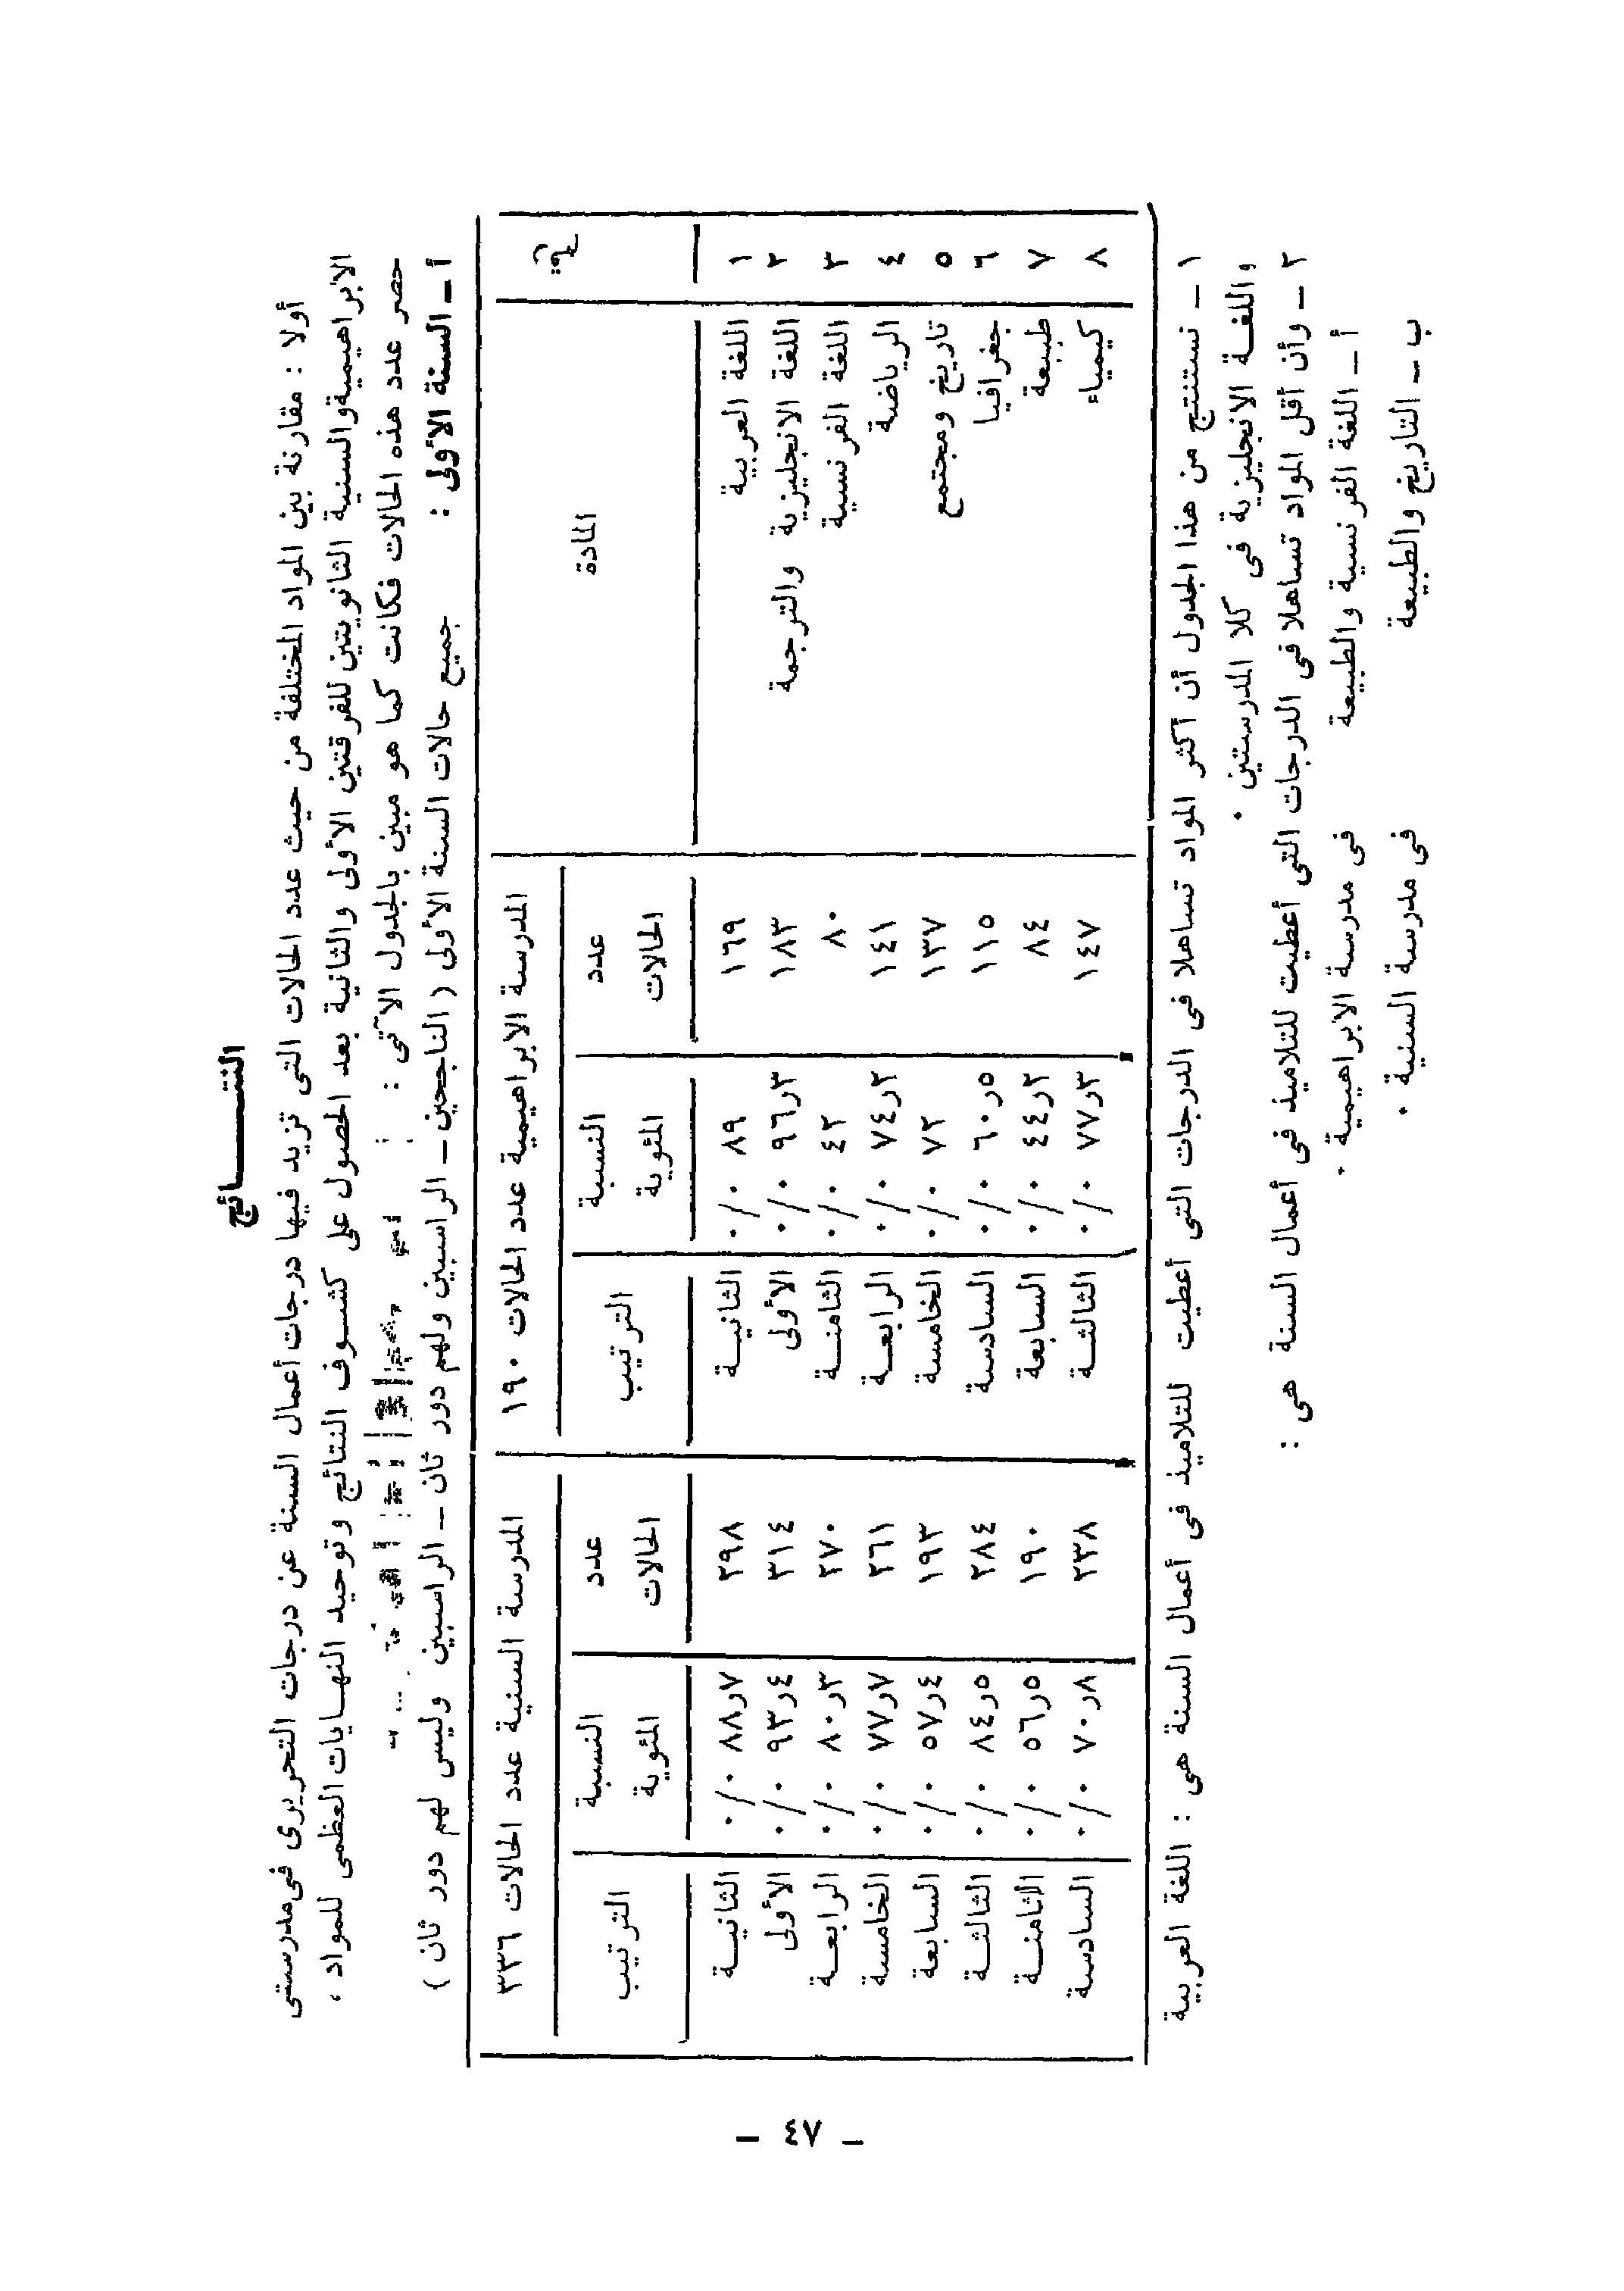 النتـــــائج
أولا : مقارنة بين المواد المختلفة من حيث عدد الحالات التى تزيد فيها درجات أعمال السنة عن درجات التحريرى فى مدرستى
الابراهيمية والسنية الثانويتين للفرقتين الأولى والثانية بعد الحصول على كشوف النتائج وتوحيد النهايات العظمى للمواد ،
حصر عدد هذه الحالات فكانت كما هو مبين بالجدول الآتى :
أ ـ السنة الأولى : جميع حالات السنة الأولى ( الناجحين ـ الراسبين ولهم دور ثان ـ الراسبين وليس لهم دور ثان )
المادة المدرسة الابراهيمية عدد الحالات ١٩٠ المدرسة السنية عدد الحالات ٣٣٦
عدد الحالات النسبة المئوية الترتيب عدد الحالات النسبة المئوية الترتيب
١ اللغة العربية ١٦٩ ٨٩ ٠/٠ الثانيـة ٢٩٨ ٨٨٫٧ ٠/٠ الثانيـة
٢ اللغة الانجليزية والترجمة ١٨٣ ٩٦٫٣ ٠/٠ الأولى ٣١٤ ٩٣٫٤ ٠/٠ الأولى
٣ اللغة الفرنسية ٨٠ ٤٢ ٠/٠ الثامنـة ٢٧٠ ٨٠٫٣ ٠/٠ الرابعـة
٤ الرياضة ١٤١ ٧٤٫٢ ٠/٠ الرابعـة ٢٦١ ٧٧٫٧ ٠/٠ الخامسة
٥ تاريخ ومجتمع ١٣٧ ٧٢ ٠/٠ الخامسة ١٩٣ ٥٧٫٤ ٠/٠ السابعة
٦ جغرافيا ١١٥ ٦٠٫٥ ٠/٠ السادسة ٢٨٤ ٨٤٫٥ ٠/٠ الثالثـة
٧ طبيعة ٨٤ ٤٤٫٢ ٠/٠ السابعة ١٩٠ ٥٦٫٥ ٠/٠ الثامنـة
٨ كيمياء ١٤٧ ٧٧٫٣ ٠/٠ الثالثـة ٢٣٨ ٧٠٫٨ ٠/٠ السادسة
١ ـ نستنتج من هذا الجدول أن أكثر المواد تساهلا فى الدرجات التى أعطيت للتلاميذ فى أعمال السنة هى : اللغة العربية
واللغـة الانجليزية فى كلا المدرستين ٠
٢ ـ وأن أقل المواد تساهلا فى الدرجات التى أعطيت للتلاميذ فى أعمال السنة هى :
أ ـ اللغة الفرنسية والطبيعة فى مدرسة الابراهيمية ٠
ب ـ التاريخ والطبيعة فى مدرسة السنية ٠
ـ ٤٧ ـ